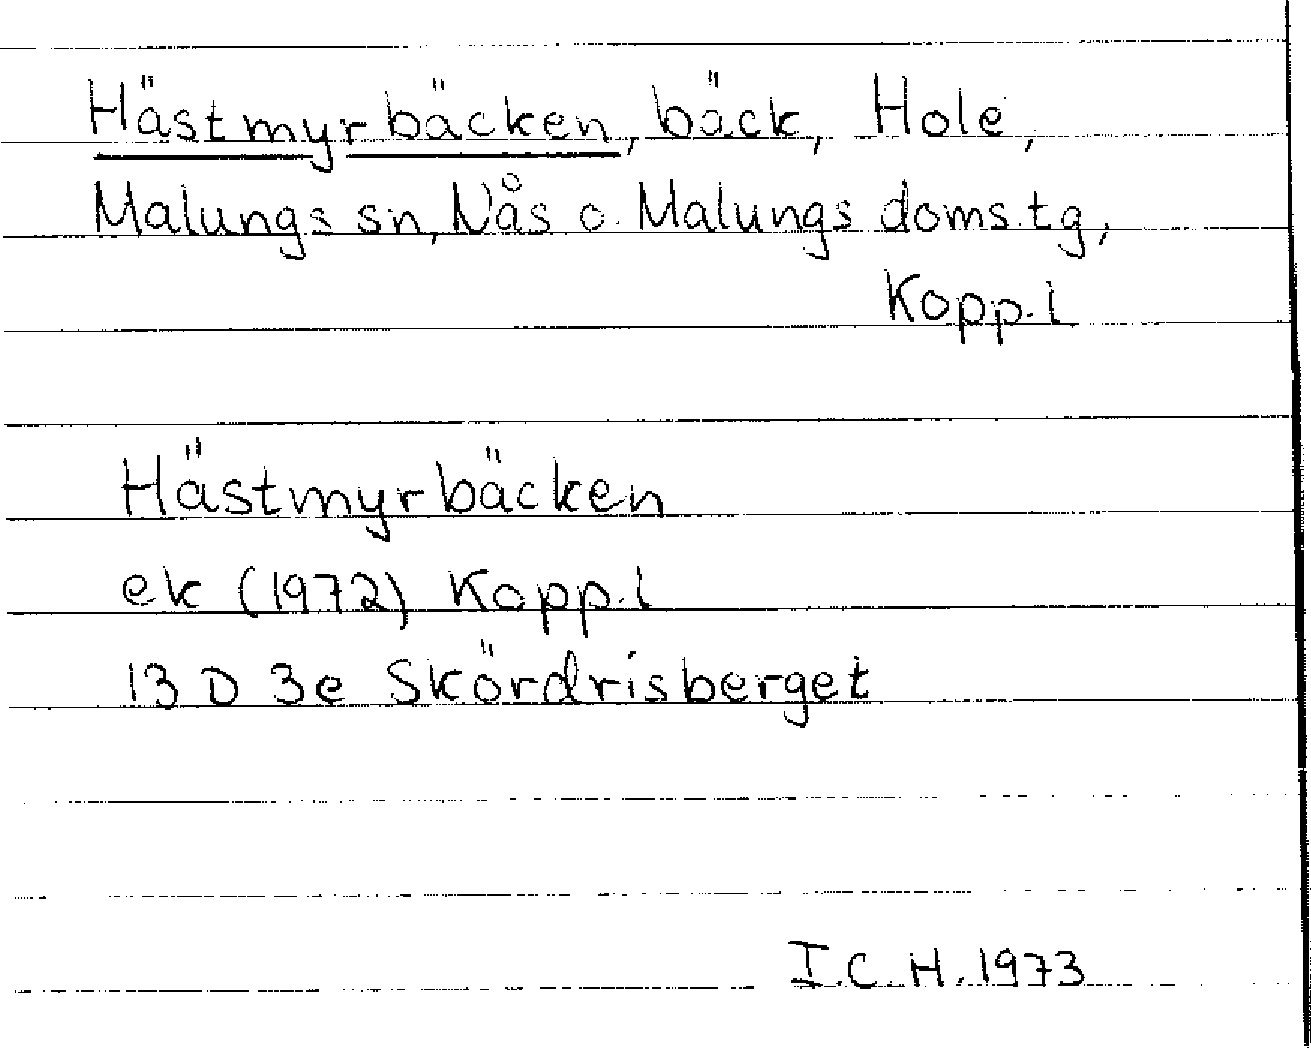 Hästmyrbäcken, bäck, Hole,
Malungs sn, Nås o. Malungs doms.tg,
Kopp.l
Hästmyrbäcken
ek (1972) Kopp.l
13 D 3e Skördrisberget
I.C.H. 1973